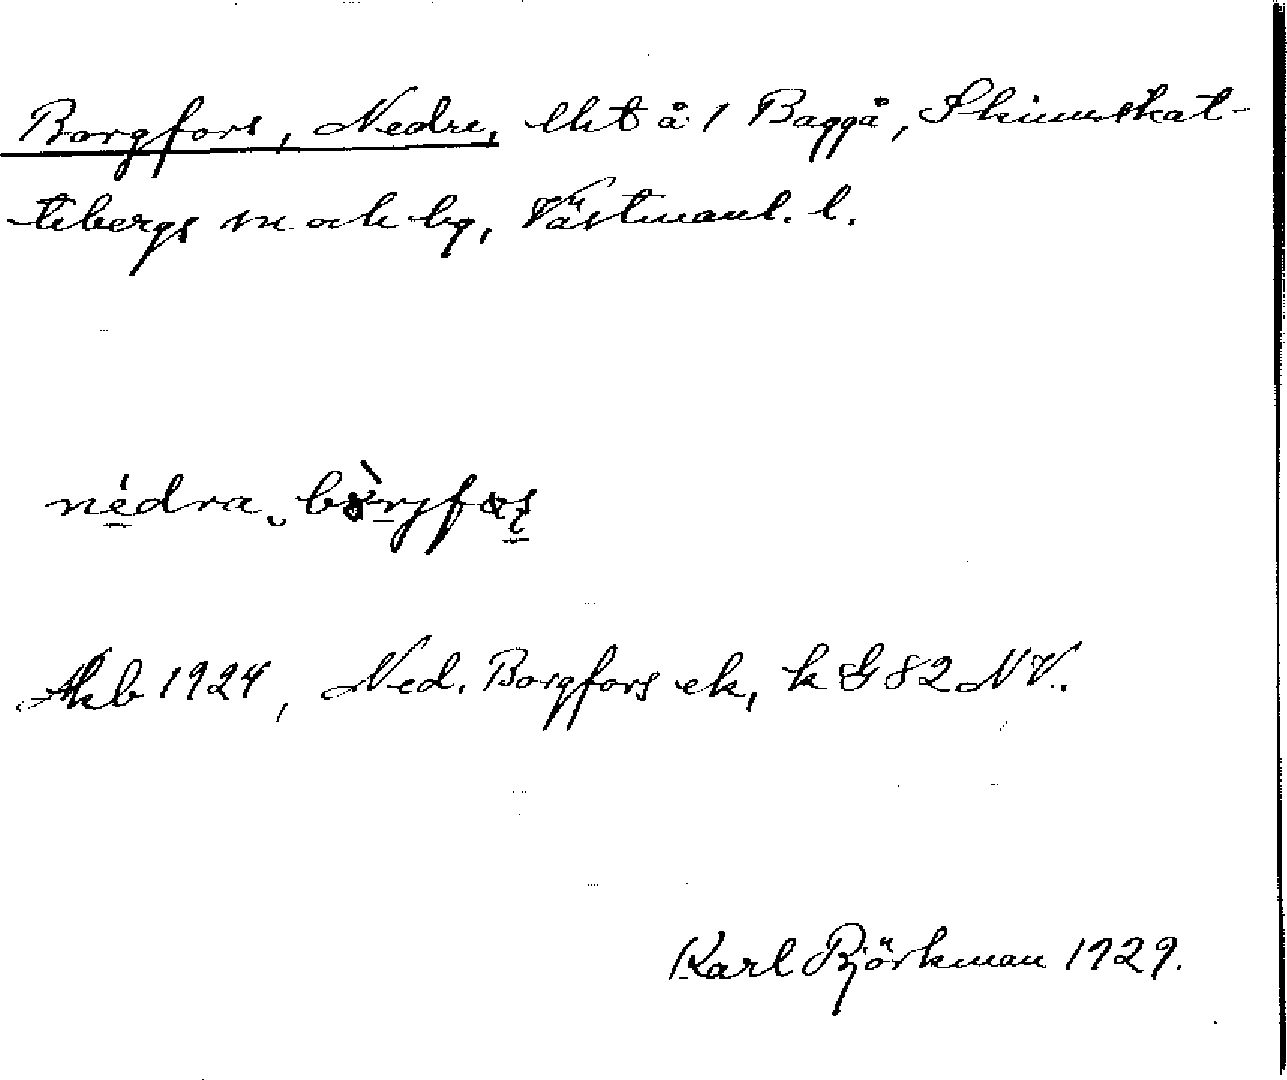 Borgfors, Nedre, lht å 1 Baggå, Skinnskat-
tebergs sn och bg, Västmanl. l.
nédra bòrjfors
Akb 1924, Ned. Borgfors ek, k G 82 NV.
Karl Björkman 1929.